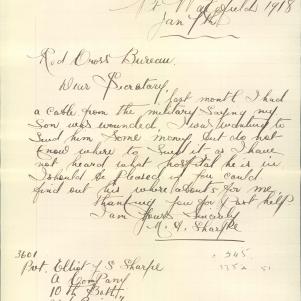 1918
Jan
Red Cross Bureau.
Dear Secretary,
Last month I had
a cable from the military saying my
Son was wounded, I was wanting to
send him some money but do not
know where to send it as I have
not heard what hospital he is in
I should be pleased if you could
find out his whereabouts for me
thanking you for past help
I am Yours Sincerely
Sharpe
3601
Pvt. Elliot J S Sharpe
A Company
10th Batt